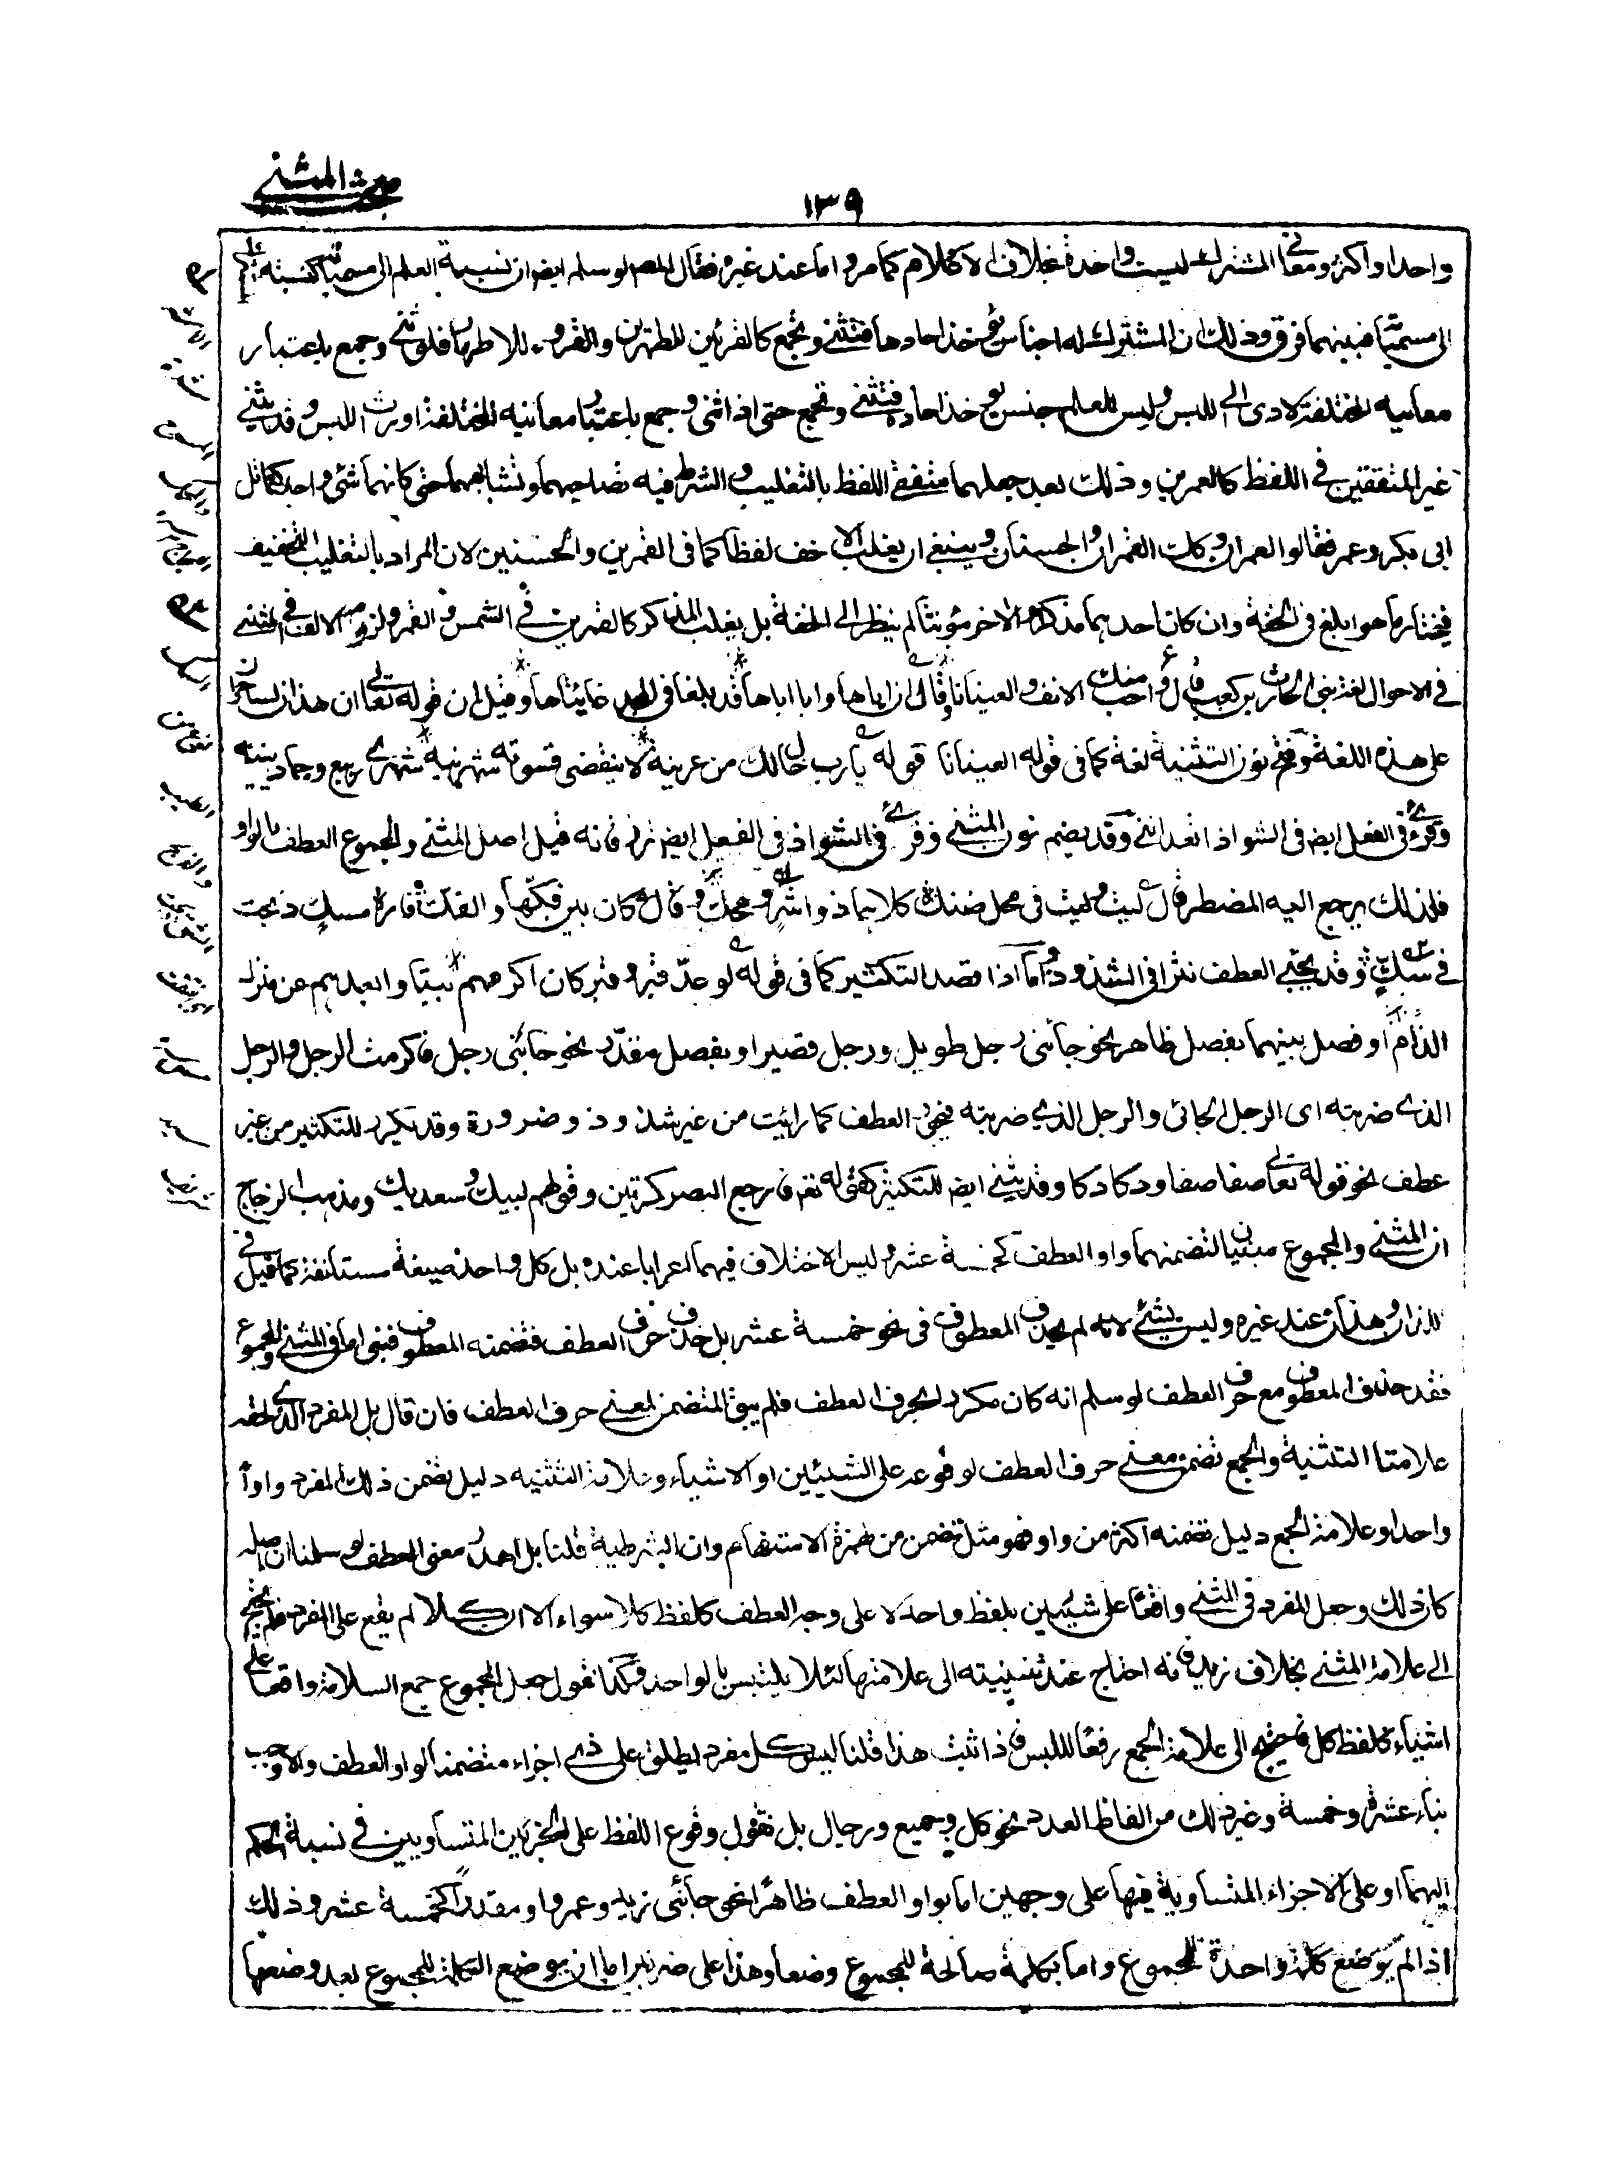 مبحث المثنى
١٣٩
واحدا واكثر ومعانى المشترك ليست واحدة بخلاف الاعلام كما مر واما عند غيره فقال المص لو سلم ايض ان نسبة العلم الى مسمياته كنسبة
الى مسمياتها فبينهما فرق وذلك ان المشترك له اجناس يؤخذ احادها فتثنى وتجمع كالقرئين للطهرين والقروء للاطهار فلو ثنى وجمع باعتبار
معانيه المختلفة لادى الى اللبس وليس للعلم جنس يؤخذ احاده فتثنى وتجمع حتى اذا ثنى وجمع باعتبار معانيه المختلفة اورث اللبس وقد يثنى
غير المتفقين فى اللفظ كالعمرين وذلك بعد جعلهما متفقى اللفظ بالتغليب والشرط فيه تصاحبهما وتشابههما حتى كانهما شئ واحد كتماثل
ابى بكر وعمر فقالوا العمران وكذا القمران والحسنان وينبغى ان يغلب الاخف لفظا كما فى القمرين والحسنين لان المراد بالتغليب التخفيف
فيختار ما هو ابلغ فى الخفة وان كان احدهما مذكرا والاخر مؤنثا لم ينظر الى الخفة بل يغلب المذكر كالقمرين فى الشمس والقمر ولزوم الالف فى المثنى
فى الاحوال لغة بنى الحارث بن كعب قال واحب منك الانف والعينانا وقال ان اباها وابا اباها قد بلغا فى المجد غايتاها وقيل ان قوله تعالى ان هذان لساحران
على هذه اللغة وفتح نون التثنية لغة كما فى قوله العينانا قوله يا رب خال لك من عرينه لا ينقضى فسوته شهرينه شهرى ربيع وجماديينه
وقرئ فى الفعل ايض فى الشواذ اتعداننى وقد يضم نون المثنى وقرئ فى الشواذ فى الفعل ايض ترزقانه قيل اصل المثنى والمجموع العطف بالواو
فلذلك يرجع اليه المضطر قال ليث وليث فى محل ضنك كلاهما ذو اشر ومحك وقال كان بين فكها والفك فارة مسك ذبحت
فى سك وقد يجئ العطف نثرا فى الشذوذ واما اذا قصد التكثير كما فى قوله لو عد قبر وقبر كان اكرمهم بيتا وابعدهم عن منزل
الذام او فصل بينهما بفصل ظاهر نحو جائنى رجل طويل ورجل قصير او بفصل مقدر نحو جائنى رجل فاكرمت الرجل والرجل
الذى ضربته اى الرجل الجائى والرجل الذى ضربته فيجوز العطف كما رايت من غير شذوذ وضرورة وقد تكرر للتكثير من غير
عطف نحو قوله تعالى صفا صفا ودكا دكا وقد يثنى ايض للتكثير كقوله تعم فارجع البصر كرتين وقولهم لبيك وسعديك ومذهب الزجاج
ان المثنى والمجموع مبنيان لتضمنهما واو العطف كخمسة عشر وليس الاختلاف فيهما اعرابا عنده بل كل واحد صيغة مستانفة كما قيل فى
اللذان وهذان عند غيره وليس بشئ لانه لم يحذف المعطوف فى نحو خمسة عشر بل حذف حرف العطف فتضمنه المعطوف فبنى اما فى المثنى والمجموع
فقد حذف المعطوف مع حرف العطف لو سلم انه كان مكررا بحرف العطف فلم يبق المتضمن لمعنى حرف العطف فان قال بل المفرد الذى لحقه
علامتا التثنية والجمع تضمن معنى حرف العطف لوقوعه على الشيئين او الاشياء وعلامة التثنيه دليل تضمن ذلك المفرد واوا
واحدا وعلامة الجمع دليل تضمنه اكثر من واو فهو مثل تضمن من همزة الاستفهام وان الشرطية قلنا بل اهدر معنى العطف لو سلمنا ان اصله
كان ذلك وجعل المفرد فى المثنى واقعا على شيئين بلفظ واحد لا على وجه العطف كلفظ كلا سواء الا ان كلا لم يقع على المفرد فلم يحتج
الى علامة المثنى بخلاف زيد فانه احتاج عند تثنيته الى علامتها لئلا يلتبس بالواحد وكذا نقول جعل المجموع جمع السلامة واقعا على
اشياء كلفظ كل فاحتيج الى علامة الجمع رفعا للبس فاذا ثبت هذا قلنا ليس كل مفرد يطلق على ذى اجزاء متضمنا لواو العطف والا وجب
بناء عشرة وخمسة وغير ذلك من الفاظ العدد نحو كل وجميع ورجال بل نقول وقوع اللفظ على الجزئين المتساويين فى نسبة الحكم
اليهما او على الاجزاء المتساوية فيها على وجهين اما بواو العطف ظاهرا نحو جائنى زيد وعمرو او مقدرا كخمسة عشر وذلك
اذا لم يوضع كلمة واحدة للمجموع واما بكلمة صالحة للمجموع وضعا وهذا على ضربين اما ان يوضع الكلمة للمجموع بعد وضعها